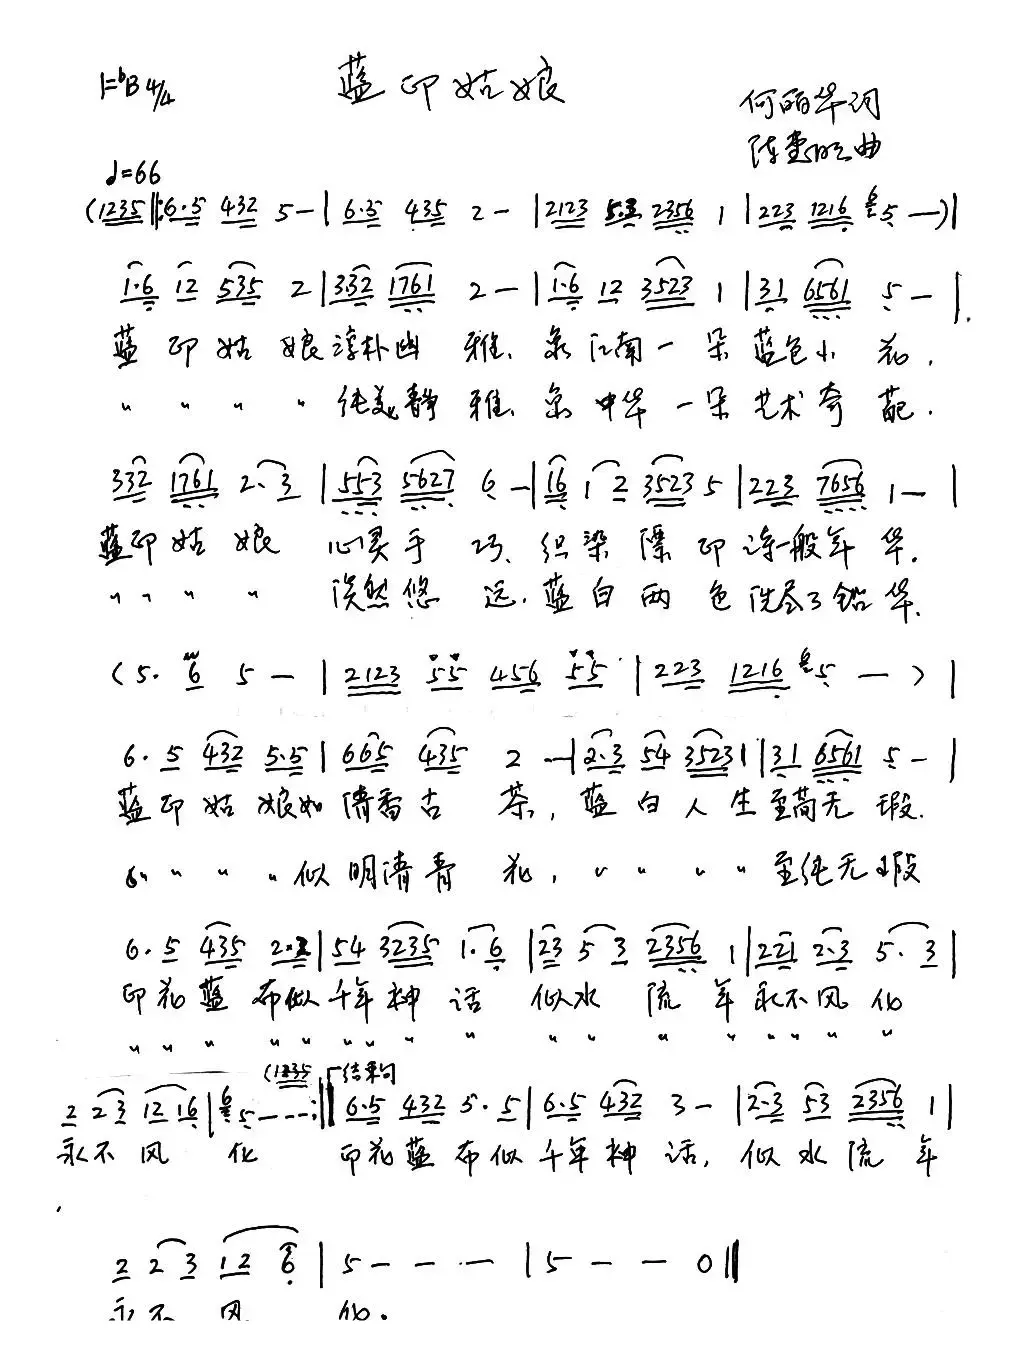 1=bB 4/4
蓝印姑娘
何丽华词
曲
♩=66
(1235‖:6·5 432 5-|6·5 435 2-|2123 5·3 2356 1|223 1216 6 5-)|
1·6 12 535 2|332 1761 2-|1·6 12 3523 1|31 6561 5-|
蓝印姑娘淳朴幽雅、象江南一朵蓝色小花,
〃 〃 〃 〃 纯美静雅、象中华一朵艺术奇葩.
332 1761 2·3|553 5627 6-|16 1 2 3523 5|223 7656 1-|
蓝印姑娘 心灵手巧、织染漂印诗一般年华.
〃 〃 〃 〃 淡然悠远. 蓝白两色洗尽了铅华.
(5· 6 5-|2123 55 456 55|223 1216 6 5-)|
6·5 432 5·5|665 435 2-|2·3 54 3523 1|31 6561 5-|
蓝印姑娘如清香古茶, 蓝白人生至简无瑕.
〃 〃 〃 〃 似明清青花, 〃 〃 〃 〃 至纯无瑕
6·5 435 2·2|54 3235 1·6|23 5 3 2356 1|221 2·3 5·3|
印花蓝布似千年神话 似水流年永不风化
〃 〃 〃 〃 〃 〃 〃 〃 〃 〃 〃 〃 〃 〃 〃 〃 〃
(1235 结束句
2 23 12 16|6 5---:‖6·5 432 5·5|6·5 432 3-|2·3 53 2356 1|
永不风化 印花蓝布似千年神话, 似水流年
2 2 3 12 6|5---|5--0‖
永不风化.